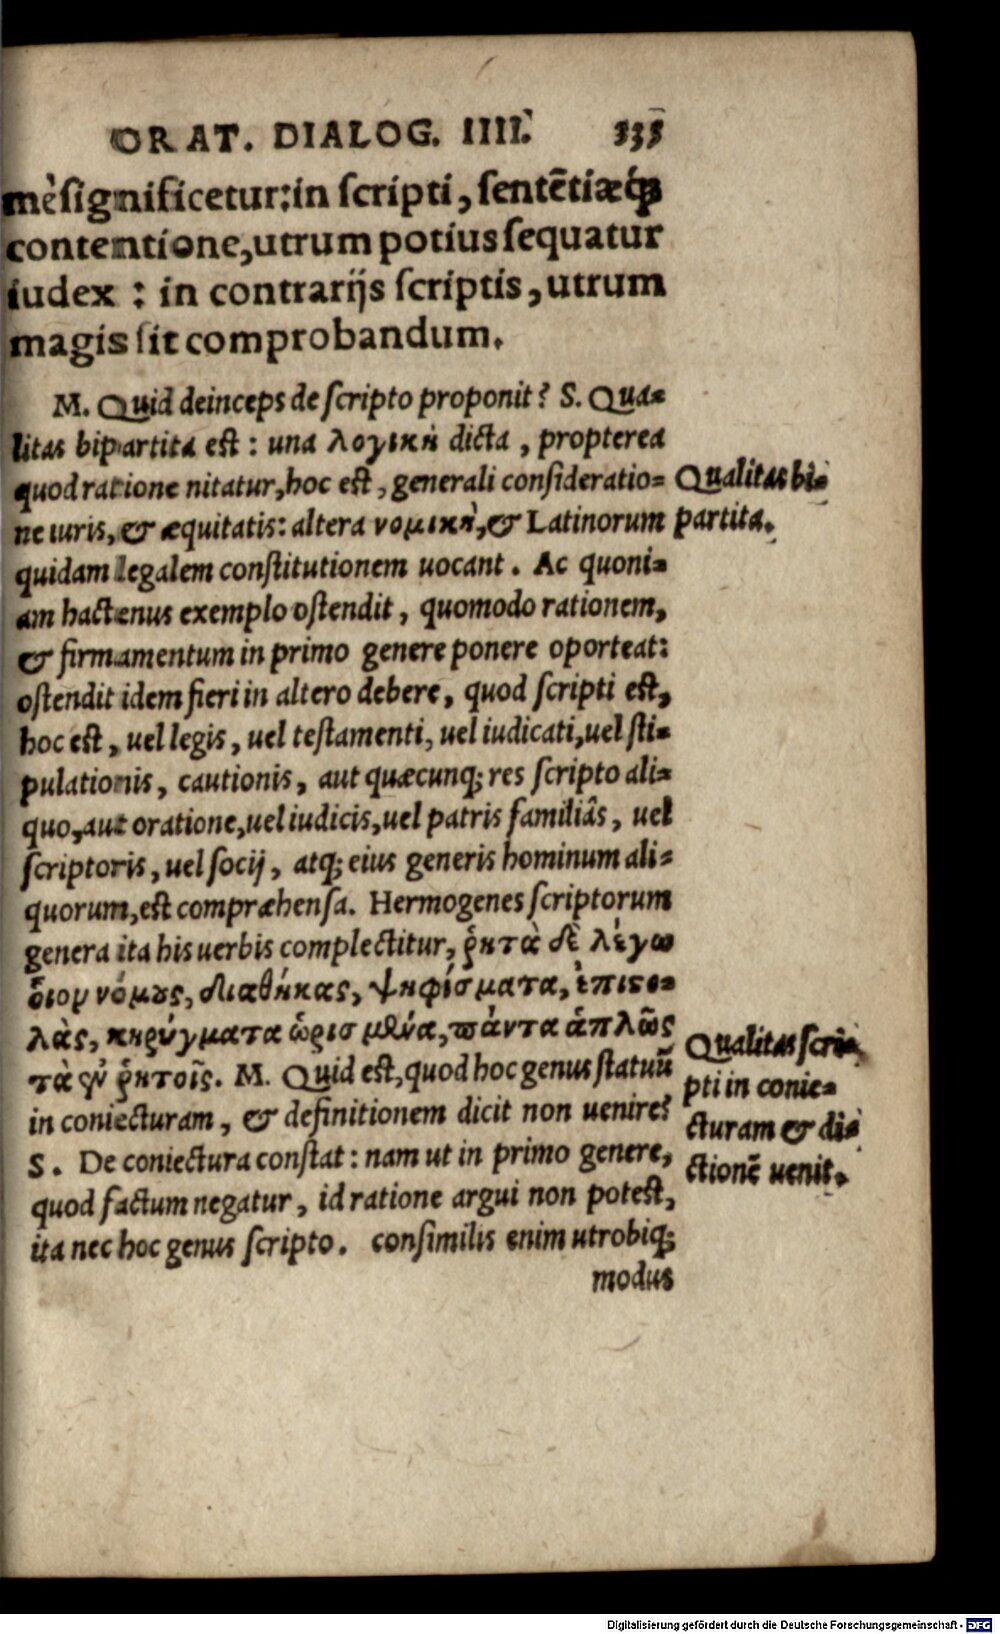 ORAT. DIALOG. IIII. 333
mè significetur: in scripti, sentẽtiæq́;
contentione, utrum potius sequatur
iudex : in contrarijs scriptis, utrum
magis sit comprobandum.
M. Quid deinceps de scripto proponit? S. Qua=
litas bipartita est : una λογικὴ dicta, propterea
quod ratione nitatur, hoc est, generali consideratio=
ne iuris, & æquitatis: altera νομικὴ, & Latinorum
quidam legalem constitutionem uocant. Ac quoni=
am hactenus exemplo ostendit, quomodo rationem,
& firmamentum in primo genere ponere oporteat:
ostendit idem fieri in altero debere, quod scripti est,
hoc est, uel legis, uel testamenti, uel iudicati, uel sti=
pulationis, cautionis, aut quæcunq; res scripto ali=
quo, aut oratione, uel iudicis, uel patris familiâs, uel
scriptoris, uel socij, atq; eius generis hominum ali=
quorum, est compræhensa. Hermogenes scriptorum
genera ita his uerbis complectitur, ῥητὰ δὲ λέγω
ὅιον νόμους, διαθήκας, ψηφίσματα, ἐπιστο=
λὰς, κηρύγματα ὡρισμένα, πάντα ἁπλῶς
τὰ ἐν ῥητοῖς. M. Quid est, quod hoc genus statuũ
in coniecturam, & definitionem dicit non uenire?
S. De coniectura constat : nam ut in primo genere,
quod factum negatur, id ratione argui non potest,
ita nec hoc genus scripto. consimilis enim utrobiq;
modus
Qualitas bi=
partita.
Qualitas scri=
pti in conie=
cturam & di=
ctionẽ uenit.
Digitalisierung gefördert durch die Deutsche Forschungsgemeinschaft - DFG